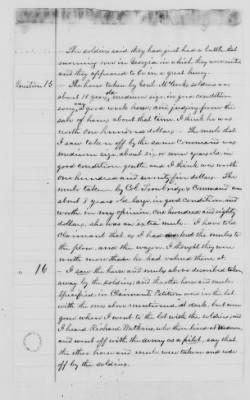 The soldiers said they had just had a battle that
morning over in Georgia in which they were
and they appeared to be in a great hurry.
Question 15 The horse taken by Genl McCooks soldiers was
about 10 years old, medium size, in good condition
a very good work horse, and judging from the
sale of horses about that time. I think he was
worth one hundred dollars. The mule that
I saw taken off by the same Command was
medium size about six or seven years old, in
good condition youth and I think was worth
one hundred and seventy five dollars. The
mule taken by Col. Command was
about 5 years old large, in good condition and
worth in my opinion one hundred and eighty
dollars, she was an extra mule. I have told
Claimant that as I had worked the mules to
the plow, and the wagon I thought they were
worth more than he had valued them at.
" 16 I saw the horse and mules above described taken
away by the soldiers, and the other horse and mule
specified in Claimants Petition was in the lot
with the ones above mentioned at dark, but were
gone where I went to the lot with the soldiers, and
I heard Richard Watkins, who then lived at
and went off with the army as a pilot, say that
the other horse and mule were taken and rode
off by the soldiers.